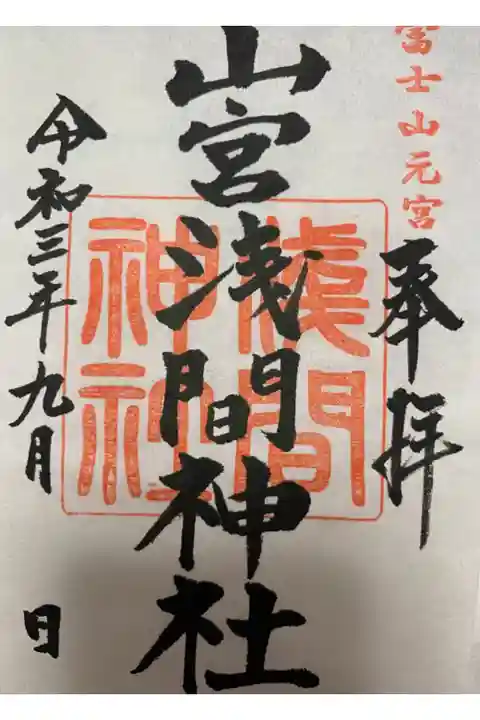 富士山元宮
奉拝
山宮浅間神社
淺間
神社
令和三年九月 日